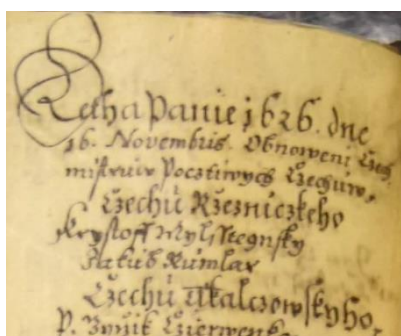 Letha Panie 1626. dne
16. Novembris. Obnoweni Czech
mistruw Pocztiwych Czechuw,
Czechu Rzezniczkeho
Krysstoff
Jakub Rumlar
Czechu Tkalczowskyho
P. Czerwenka